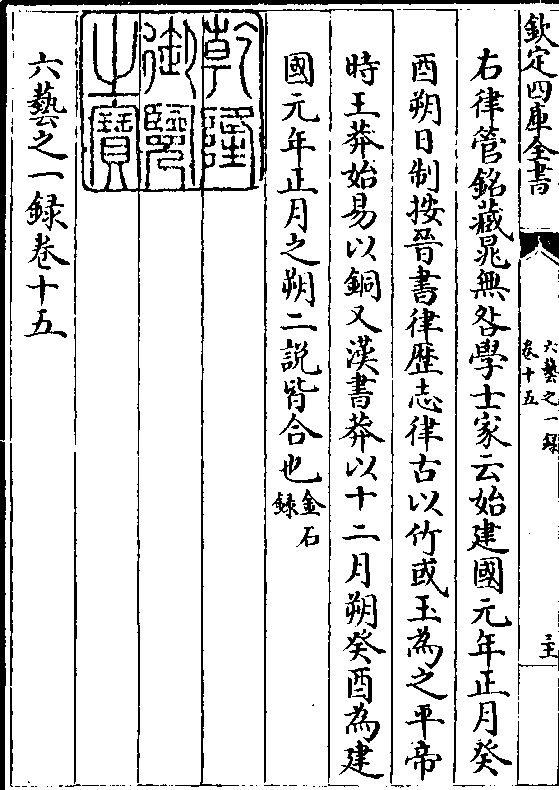 欽定四庫全書
六藝之一録
卷十五
右律管銘藏晁無咎學士家云始建國元年正月癸
酉朔日制按晉書律歴志律古以竹或玉為之平帝
時王莽始易以銅又漢書莽以十二月朔癸酉為建
國元年正月之朔二説皆合也金石
録
乾隆
御覽
之寶
六藝之一録卷十五